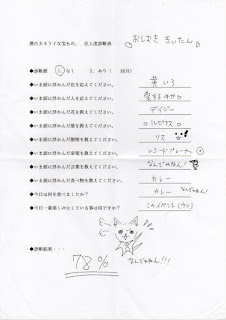 僕の大キライな宝もの。 色人度診断書
おしむぎ きぃたん♡
◆診断歴 ①.な( 2.あり( 回目)
◆いま頭に浮かんだ色を教えてください。 黄いろ
◆いま頭に浮かんだ人を教えてください。
◆いま頭に浮かんだ花を教えてください。 デイジー
◆いま頭に浮かんだ
◆いま頭に浮かんだ動物を教えてください。 リス
◆いま頭に浮かんだ家電を教えてください。 レコードプレーヤー
◆いま頭に浮かんだ言葉を教えてください。 なんでやねん!
◆いま頭に浮かんだ食べ物を教えてください。 カレー
◆今日は何を食べましたか? カレー なんでやねん!
◆今日一番楽しみにしている事は何ですか? このイベント(ウソ)
◆診断結果・・・
78%
なんでやねん!!!